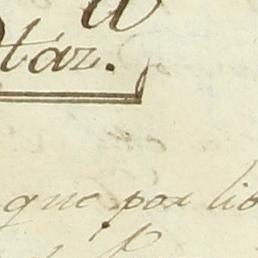 táz.
que por lib